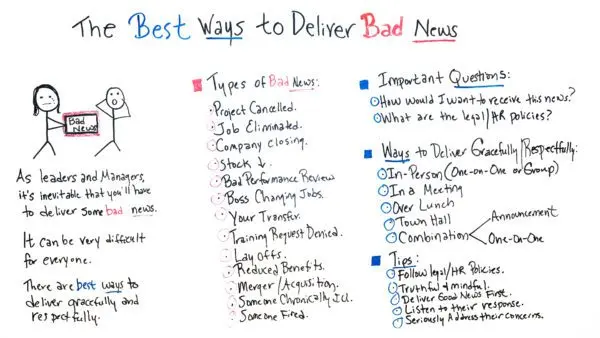 The Best Ways to Deliver Bad News
Bad
News
As leaders and Managers,
it's inevitable that you'll have
to deliver some bad news.
It can be very difficult
for everyone.
There are best ways to
deliver gracefully and
respectfully.
Types of Bad News:
Project Cancelled.
Job Eliminated.
Company Closing.
Stock ↓.
Bad Performance Review
Boss Changing Jobs.
Your Transfer.
Training Request Denied.
Lay offs.
Reduced Benefits.
Merger/Acquisition.
Someone Chronically Ill.
Someone Fired.
Important Questions:
How would I want to receive this news?
What are the legal/HR policies?
Ways to Deliver Gracefully/Respectfully:
In-Person (One-on-One or Group)
In a Meeting
Over Lunch
Town Hall
Combination
Announcement
One-On-One
Tips:
Follow legal/HR Policies.
Truthful & mindful.
Deliver Good News First.
Listen to their response.
Seriously Address their concerns.